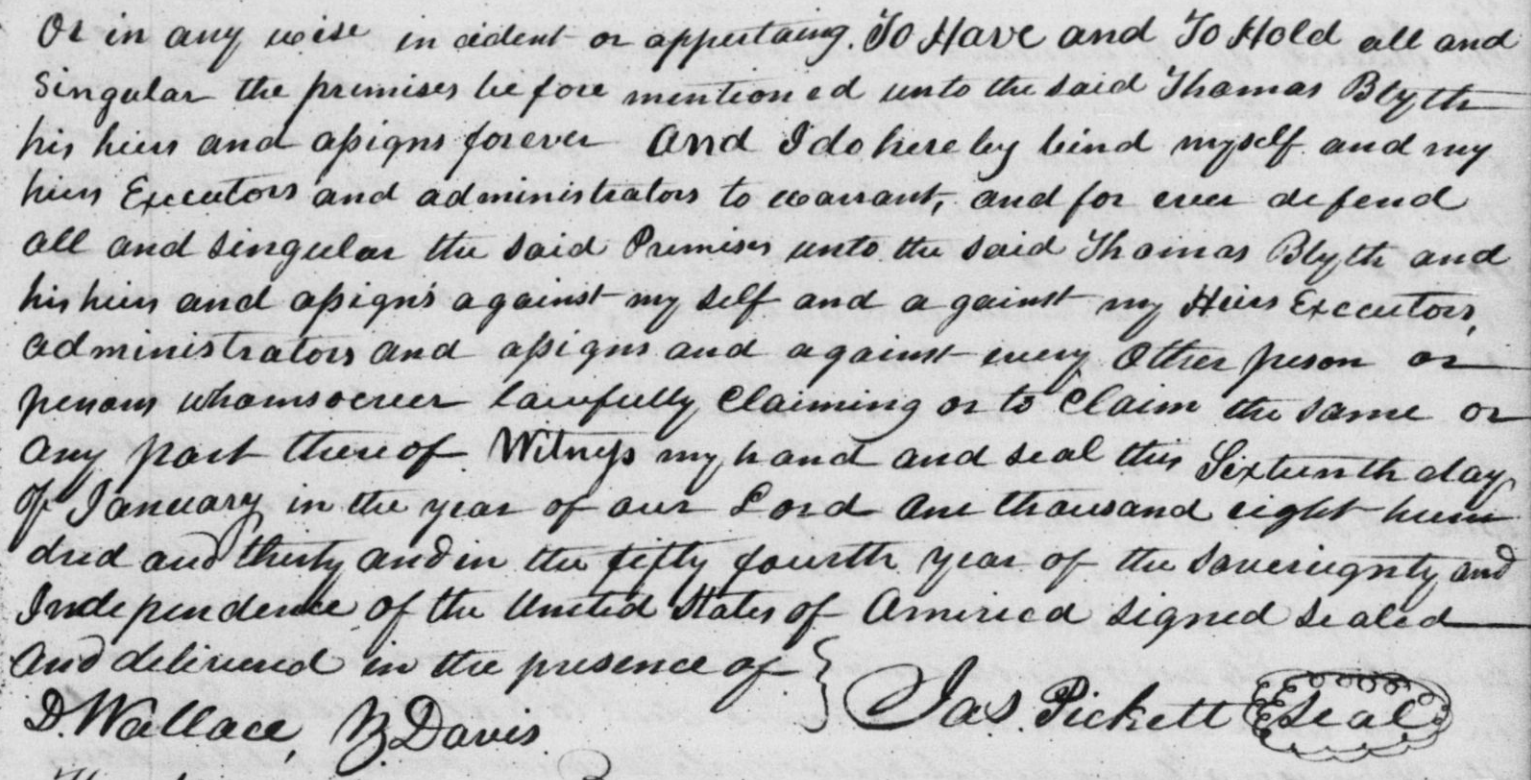 Or in any wise in cident or appertaing. To Have and To Hold all and
Singular the premises before mentioned unto the said Thomas Blyth
his heirs and assigns forever And I do hereby bind myself and my
heirs Executors and administrators to warrant, and for ever defend
all and singular the said Premises unto the said Thomas Blyth and
his heirs and assigns against my self and against my Heirs Executors,
administrators and assigns and against every Other person or
persons whomsoever lawfully Claiming or to Claim the same or
any part thereof Witness my hand and seal this Sixteenth day
of January in the year of our Lord One thousand eight hun
dred and thirty and in the fifty fourth year of the Sovereignty and
Independence of the United States of America signed sealed
And delivered in the presence of
D. Wallace, Z Davis
Jas. Pickett Seal